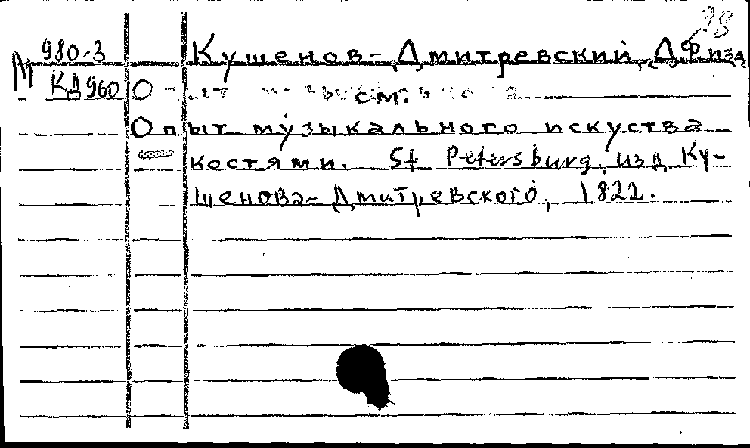 98
М 980-3 Кушенов-Дмитревский, Д.Ф. изд
КД960 см.
Опыт музыкального искуства
костями. St Petersburg, изд Ку-
шенова-Дмитревского, 1822.